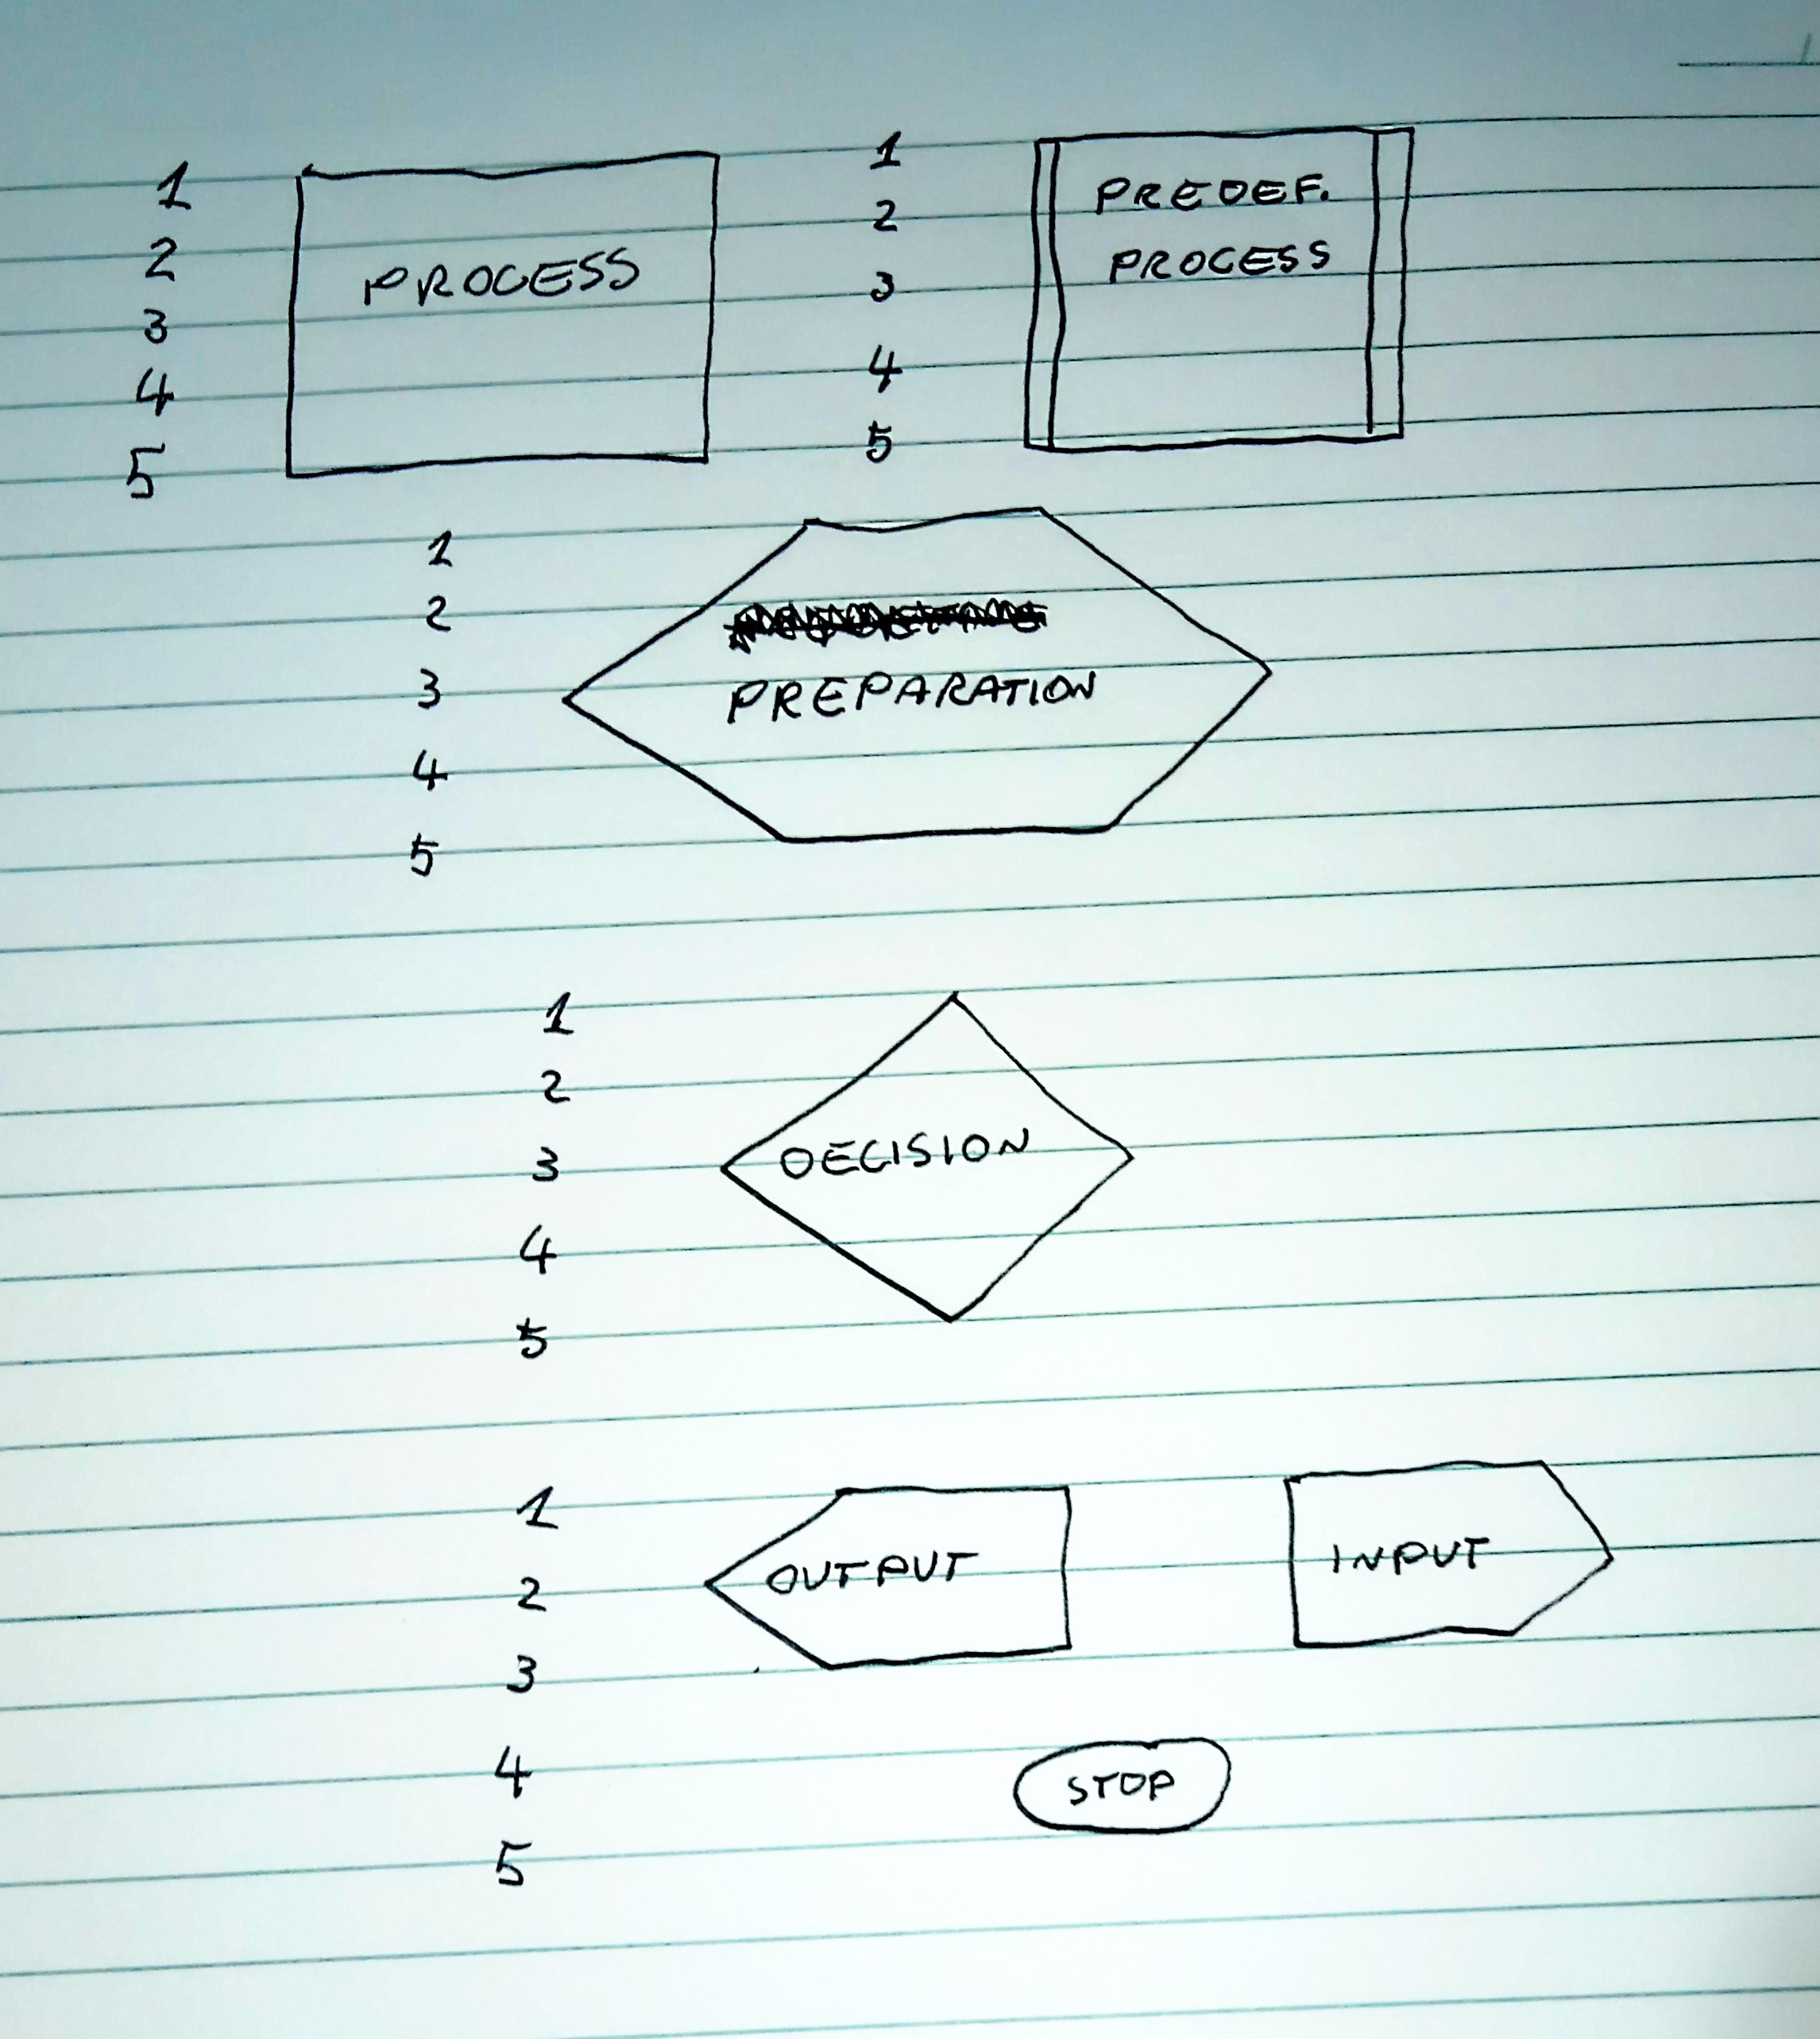 1
2
3
4
5
PROCESS
1
2
3
4
5
PREDEF.
PROCESS
1
2
3
4
5
PREPARATION
1
2
3
4
5
DECISION
1
2
3
4
5
OUTPUT
INPUT
STOP